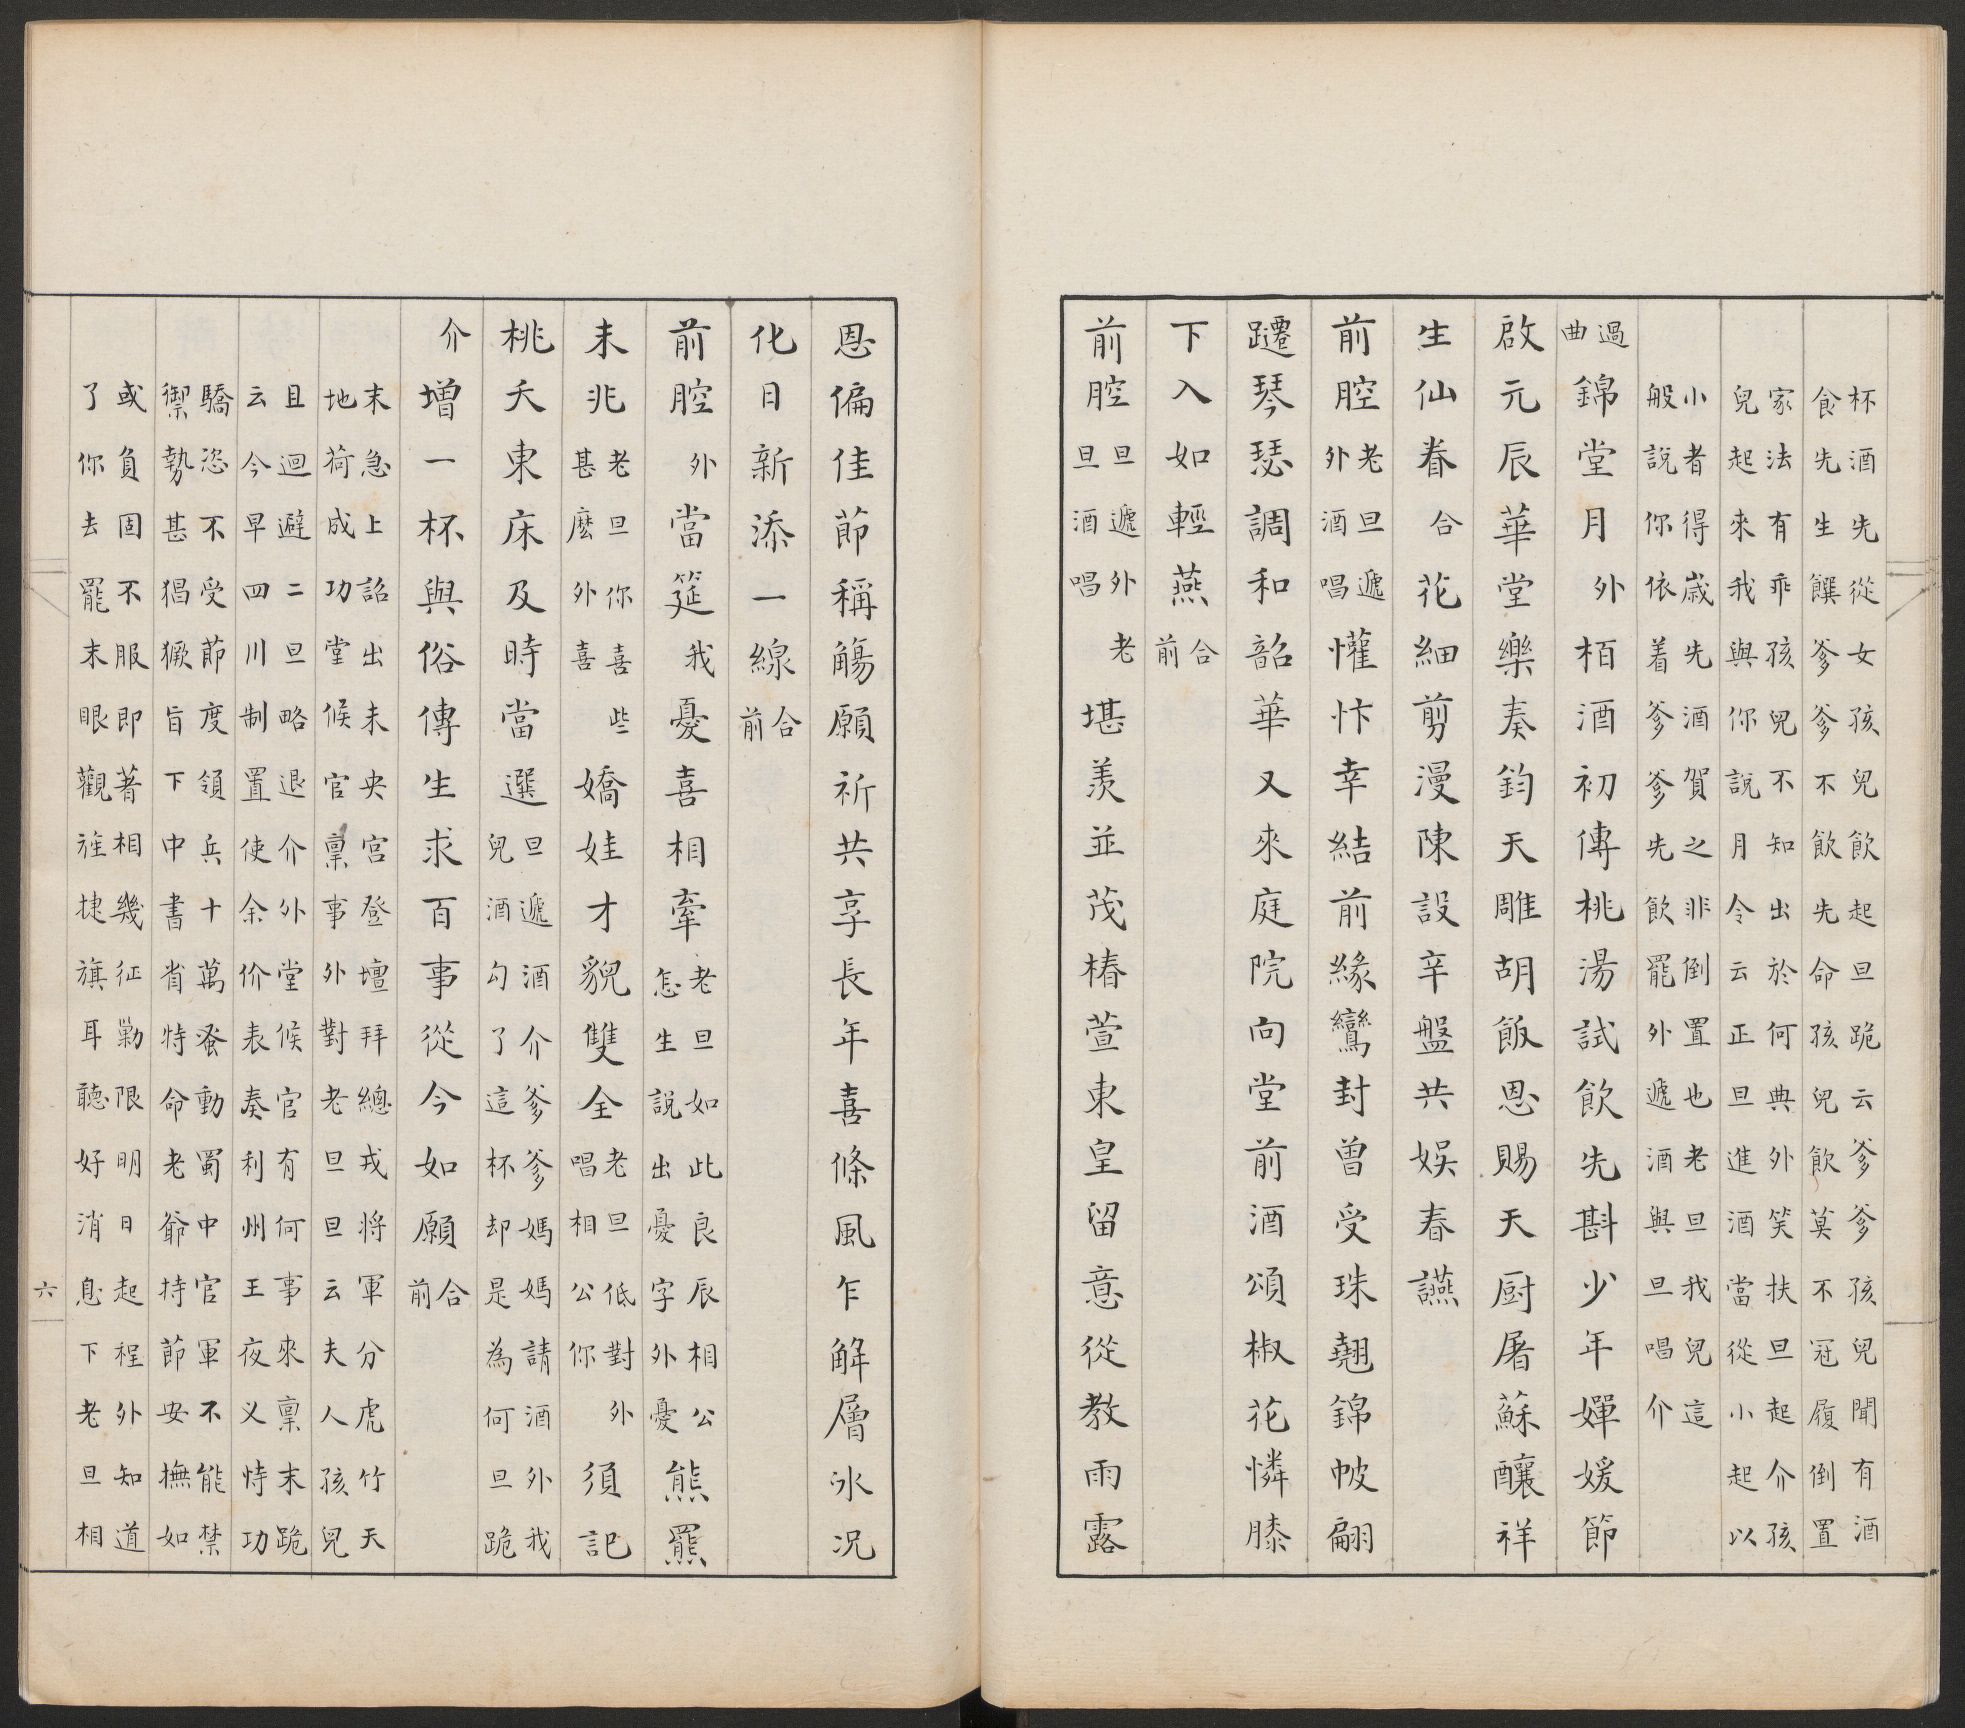 杯酒先從女孩兒飲起旦跪云爹爹孩兒聞有酒
食先生饌爹爹不飲先命孩兒飲莫不冠履倒置
家法有乖孩兒不知出於何典外笑扶旦起介孩
兒起來我與你說月令云正旦進酒當從小起以
小者得歲先酒賀之非倒置也老旦我兒這
般說你依着爹爹先飲罷外遞酒與旦唱介
過曲錦堂月外栢酒初傳桃湯試飲先斟少年嬋媛節
啟元辰華堂樂奏鈞天雕胡飯恩賜天厨屠蘇釀祥
生仙眷合花細剪漫陳設辛盤共娛春讌
前腔老旦遞外酒唱懽忭幸結前緣鸞封曾受珠翹錦帔翩
躚琴瑟調和韶華又來庭院向堂前酒頌椒花憐膝
下入如輕燕合前
前腔旦遞外老旦酒唱堪羨並茂椿萱東皇留意從教雨露
恩偏佳節稱觴願祈共享長年喜條風乍解層冰況
化日新添一線合前
前腔外當筵我憂喜相牽老旦如此良辰相公怎生說出憂字外憂熊羆
未兆老旦你喜些甚麽外喜嬌娃才貌雙全老旦低對外唱相公你須記
桃夭東床及時當選旦遞酒介爹爹媽媽請酒外我兒酒勾了這杯却是為何旦跪
介增一杯與俗傳生求百事從今如願合前
末急上詔出未央宮登壇拜總戎將軍分虎竹天
地荷成功堂候官稟事外對老旦旦云夫人孩兒
且迴避二旦略退介外堂候官有何事來稟末跪
云今早四川制置使余价表奏利州王夜义恃功
驕恣不受節度領兵十萬蚤動蜀中官軍不能禁
禦勢甚猖獗旨下中書省特命老爺持節安撫如
或負固不服即著相幾征勦限明日起程外知道
了你去罷末眼觀旌捷旗耳聽好消息下老旦相
六